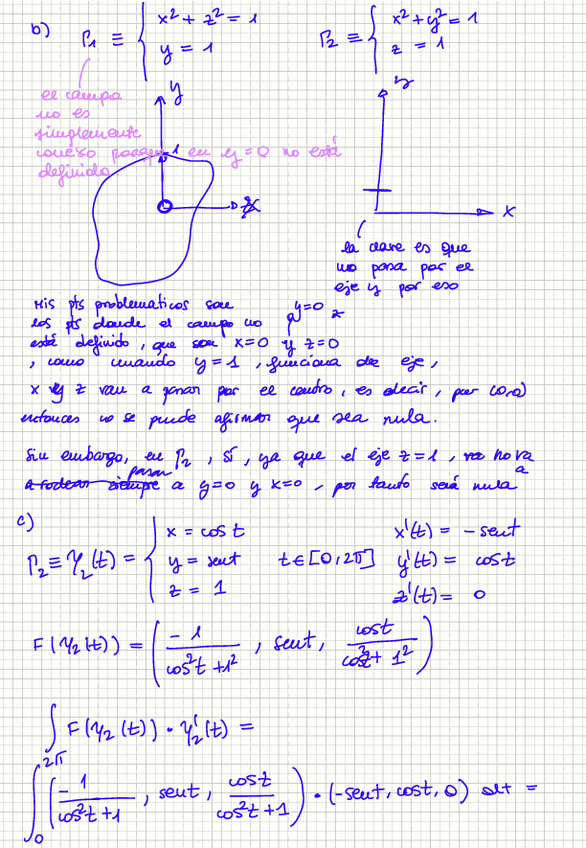 b) Γ₁ ≡ { x² + z² = 1
y = 1
Γ₂ ≡ { x² + y² = 1
z = 1
el campo
no es
simplemente
conexo porque en y=0 no está
definido
y
1
x
la clave es que
no pasa por el
eje y por eso
Mis pts problemáticos son
los pts donde el campo no
y=0 z
está definido, que son x=0 y z=0
, como cuando y=1, funciona de eje,
x y z van a pasar por el centro, es decir, por (0,0)
entonces no se puede afirmar que sea nula.
Sin embargo, en Γ₂, sí, ya que el eje z=1, no va
a rodear siempre pasar a y=0 y x=0, por tanto será nula
c)
Γ₂ ≡ γ₂(t) = { x = cos t
y = sent
z = 1
t ∈ [0, 2π]
x'(t) = -sent
y'(t) = cost
z'(t) = 0
F(γ₂(t)) = ( -1 / (cos²t + 1²) , sent, cost / (cos²t + 1²) )
∫ F(γ₂(t)) · γ₂'(t) =
∫₀^2π ( -1 / (cos²t + 1) , sent, cost / (cos²t + 1) ) · (-sent, cost, 0) dt =